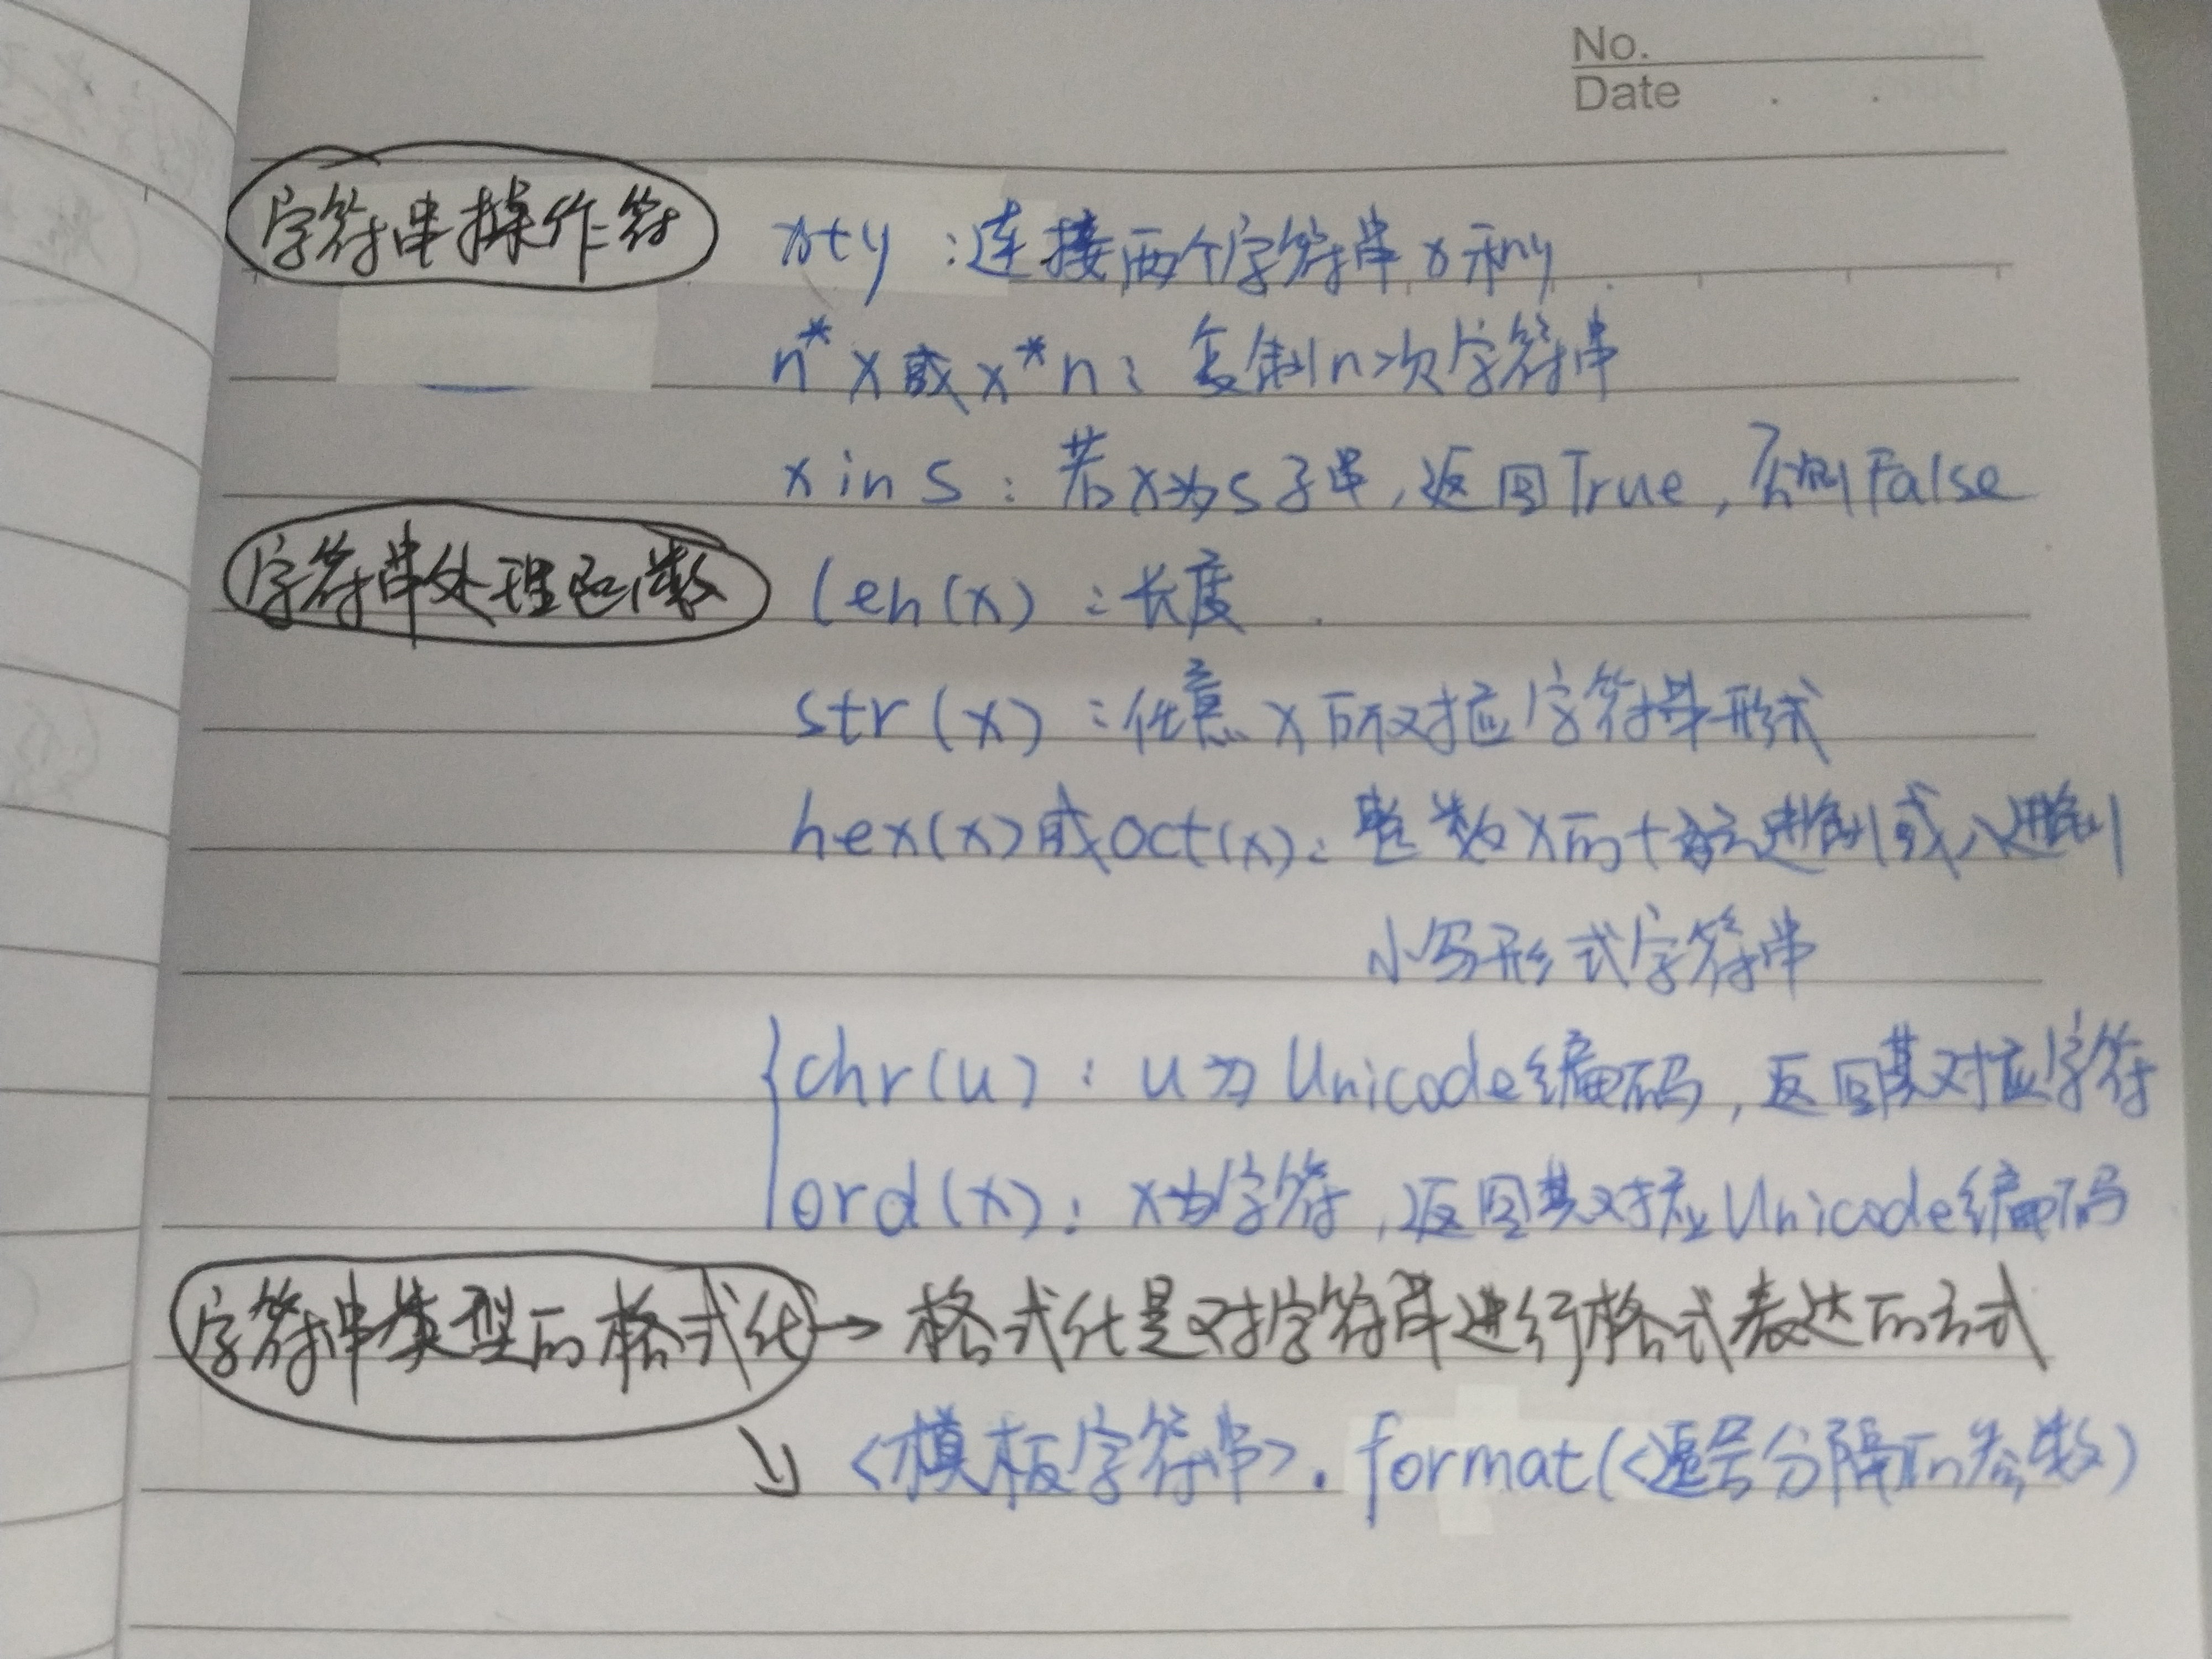 No.
Date
字符串操作符 x+y :连接两个字符串x和y
n*x或x*n: 复制n次字符串
x in s : 若x为s子串,返回True,否则False
字符串处理函数 len(x) :长度
str(x) :任意x所对应字符串形式
hex(x)或oct(x): 整数x的十六进制或八进制
小写形式字符串
{chr(u) : u为Unicode编码,返回其对应字符
ord(x): x为字符,返回其对应Unicode编码
字符串类型的格式化→格式化是对字符串进行格式表达的方式
↘ <模板字符串>.format(<逗号分隔的参数)